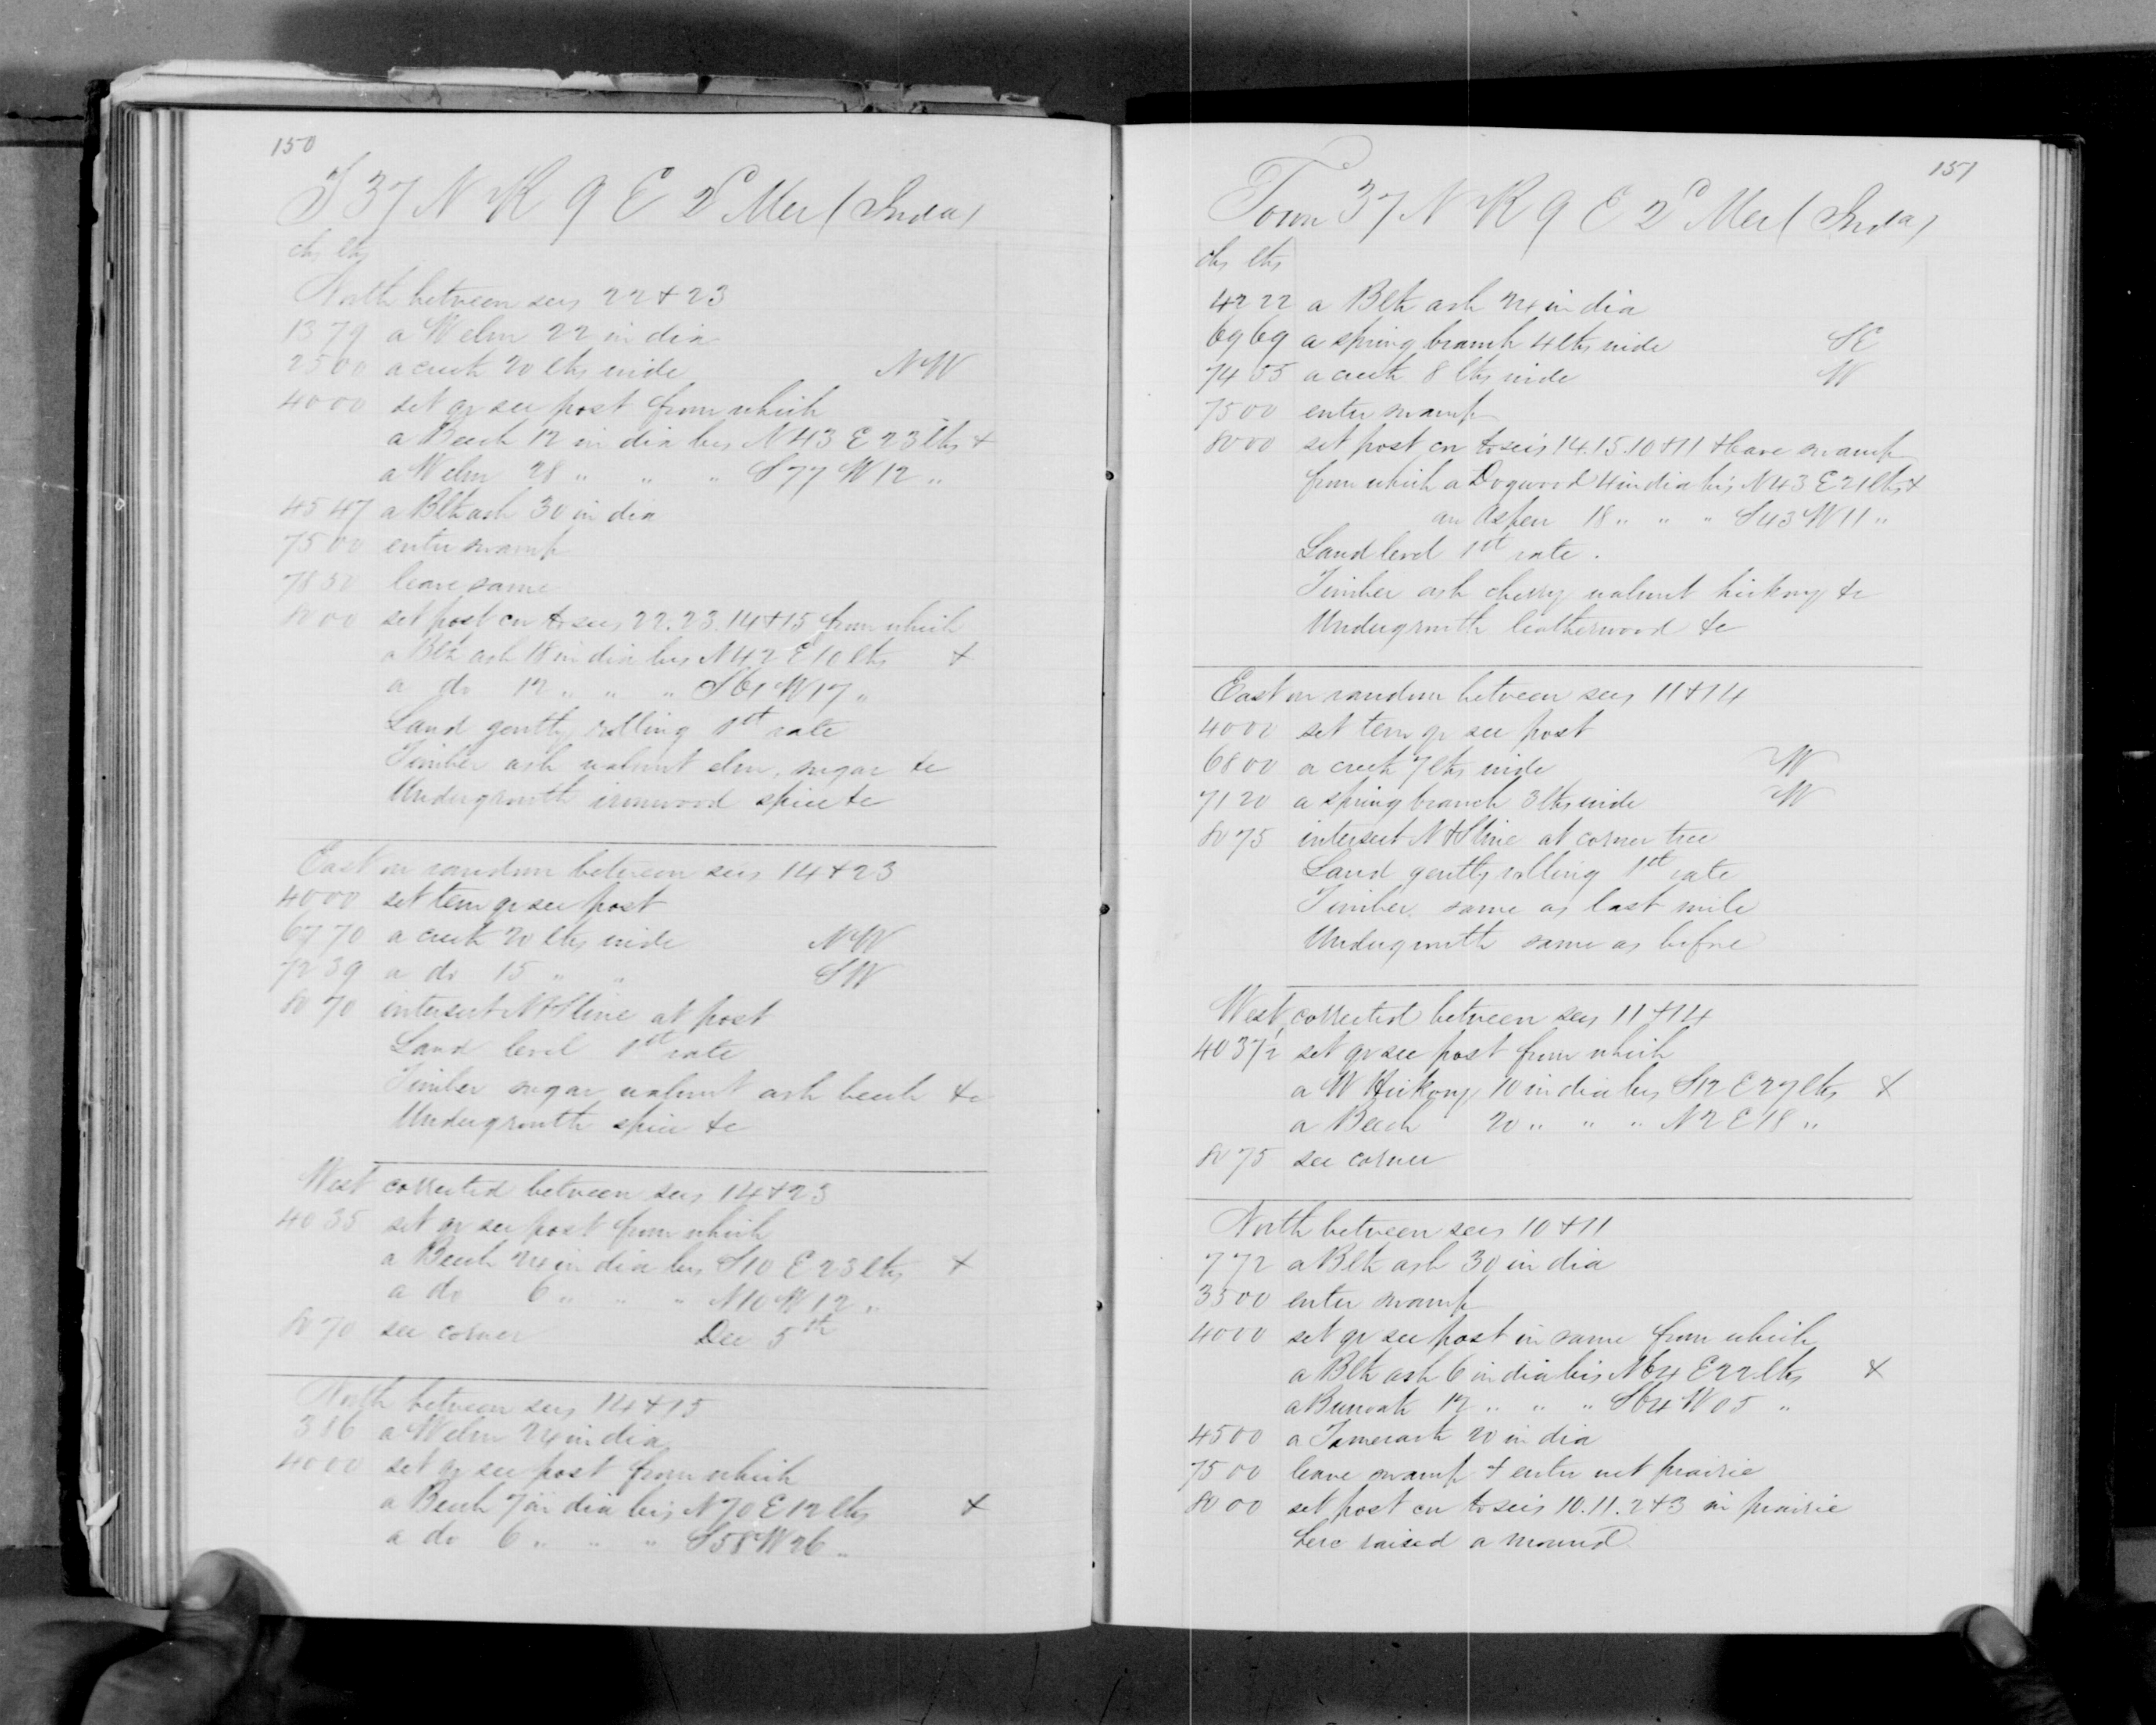 150
T 37 N R 9 E 2d Mer (Inda)
chs lks
North between secs 22 & 23
13 79 a W elm 22 in dia
25 00 a creek 20 lks wide NW
40 00 set qr sec post from which
a Beech 12 in dia brs N 43 E 23 lks &
a W elm 28 " " " S 77 W 12 "
45 47 a Blk ash 30 in dia
75 00 enter swamp
78 50 leave same
80 00 set post cor to secs 22. 23. 14 & 15 from which
a Blk ash 18 in dia brs N 42 E 10 lks &
a do 12 " " " S 61 W 17 "
Land gently rolling 1st rate
Timber ash walnut elm, sugar &c
Undergrowth ironwood spice &c
East on random between secs 14 & 23
40 00 set tem qr sec post
67 70 a creek 20 lks wide NW
72 39 a do 15 " " SW
80 70 intersect N & S line at post
Land level 1st rate
Timber sugar walnut ash beech &c
Undergrowth spice &c
West corrected between secs 14 & 23
40 35 set qr sec post from which
a Beech 24 in dia brs S 10 E 23 lks &
a do 6 " " " N 10 W 12 "
80 70 sec corner Dec 5th
North between secs 14 & 15
3 86 a W elm 24 in dia
40 00 set qr sec post from which
a Beech 7 in dia brs N 70 E 12 lks &
a do 6 " " " S 58 W 26 "
151
Town 37 N R 9 E 2d Mer (Inda)
chs lks
42 22 a Blk ash 24 in dia
69 69 a spring branch 4 lks wide SE
74 55 a creek 8 lks wide W
75 00 enter swamp
80 00 set post cor to secs 14. 15. 10 & 11 & leave swamp
from which a Dogwood 4 in dia brs N 43 E 21 lks &
an Aspen 18 " " " S 43 W 11 "
Land level 1st rate.
Timber ash cherry walnut hickory &c
Undergrowth leatherwood &c
East on random between secs 11 & 14
40 00 set tem qr sec post
68 00 a creek 7 lks wide W
71 20 a spring branch 3 lks wide W
80 75 intersect N & S line at corner tree
Land gently rolling 1st rate
Timber same as last mile
Undergrowth same as before
West corrected between secs 11 & 14
40 37½ set qr sec post from which
a W Hickory 10 in dia brs S 12 E 27 lks &
a Beech 20 " " " N 2 E 18 "
80 75 sec corner
North between secs 10 & 11
7 72 a Blk ash 30 in dia
35 00 enter swamp
40 00 set qr sec post in same from which
a Blk ash 6 in dia brs N 64 E 22 lks &
a Bur oak 12 " " " S 64 W 05 "
45 00 a Tamerack 20 in dia
75 00 leave swamp & enter wet prairie
80 00 set post cor to secs 10. 11. 2 & 3 in prairie
here raised a mound